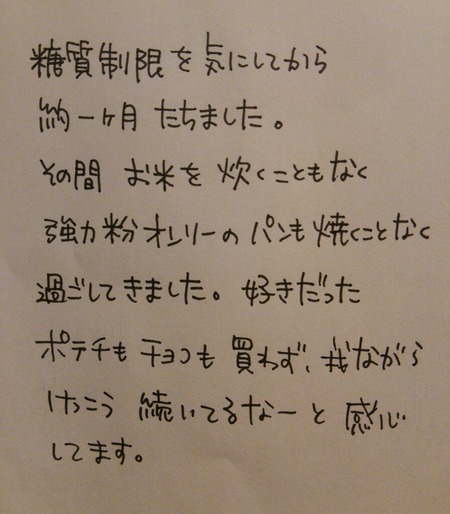 糖質制限を気にしてから
約一ヶ月 たちました。
その間 お米を 炊くこともなく
強力粉オンリーのパンも焼くことなく
過ごしてきました。好きだった
ポテチも チョコも 買わず、我ながら
けっこう 続いてるなーと 感心
してます。